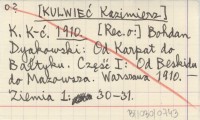 0.2
[KULWIEĆ Kazimierz]
K. K-ć. 1910. [Rec. o:] Bohdan
Dyakowski: Od Karpat do
Bałtyku. Część I: Od Beskidu
do Mazowsza. Warszawa 1910. —
Ziemia 1: 30-31.